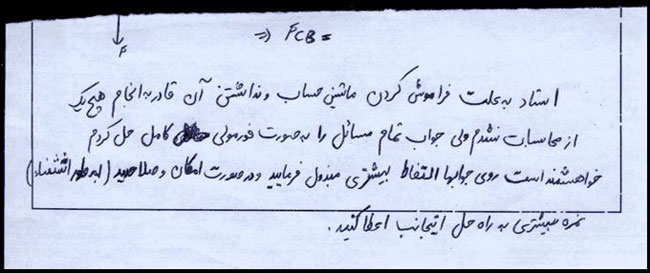 F
=> FCB =
استاد به علت فراموش کردن ماشین حساب و نداشتن آن قادر به انجام هیچ یک
از محاسبات نشدم ولی جواب تمام مسائل را به صورت فرمولی کامل حل کردم
خواهشمند است روی جوابها التفاط بیشتری مبذول فرمایید و در صورت امکان و صلاحدید (به طور استثناء)
نمره بیشتری به راه حل اینجانب اعطا کنید.